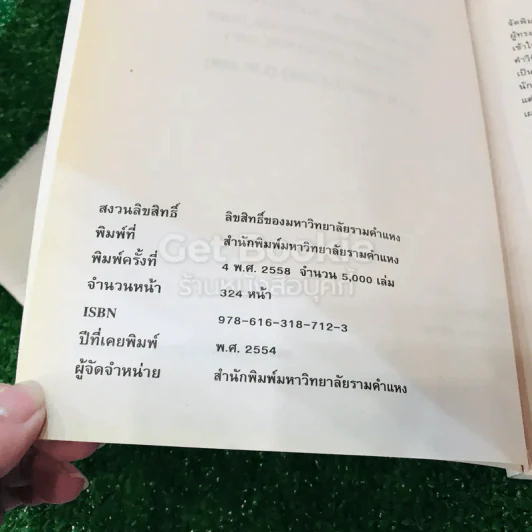 สงวนลิขสิทธิ์ ลิขสิทธิ์ของมหาวิทยาลัยรามคำแหง
พิมพ์ที่ สำนักพิมพ์มหาวิทยาลัยรามคำแหง
พิมพ์ครั้งที่ 4 พ.ศ. 2558 จำนวน 5,000 เล่ม
จำนวนหน้า 324 หน้า
ISBN 978-616-318-712-3
ปีที่เคยพิมพ์ พ.ศ. 2554
ผู้จัดจำหน่าย สำนักพิมพ์มหาวิทยาลัยรามคำแหง
Get Bookie
ร้านหนังสือบุคกี้
จัดพิม
ผู้ทรง
เป็น
นัก
แต่